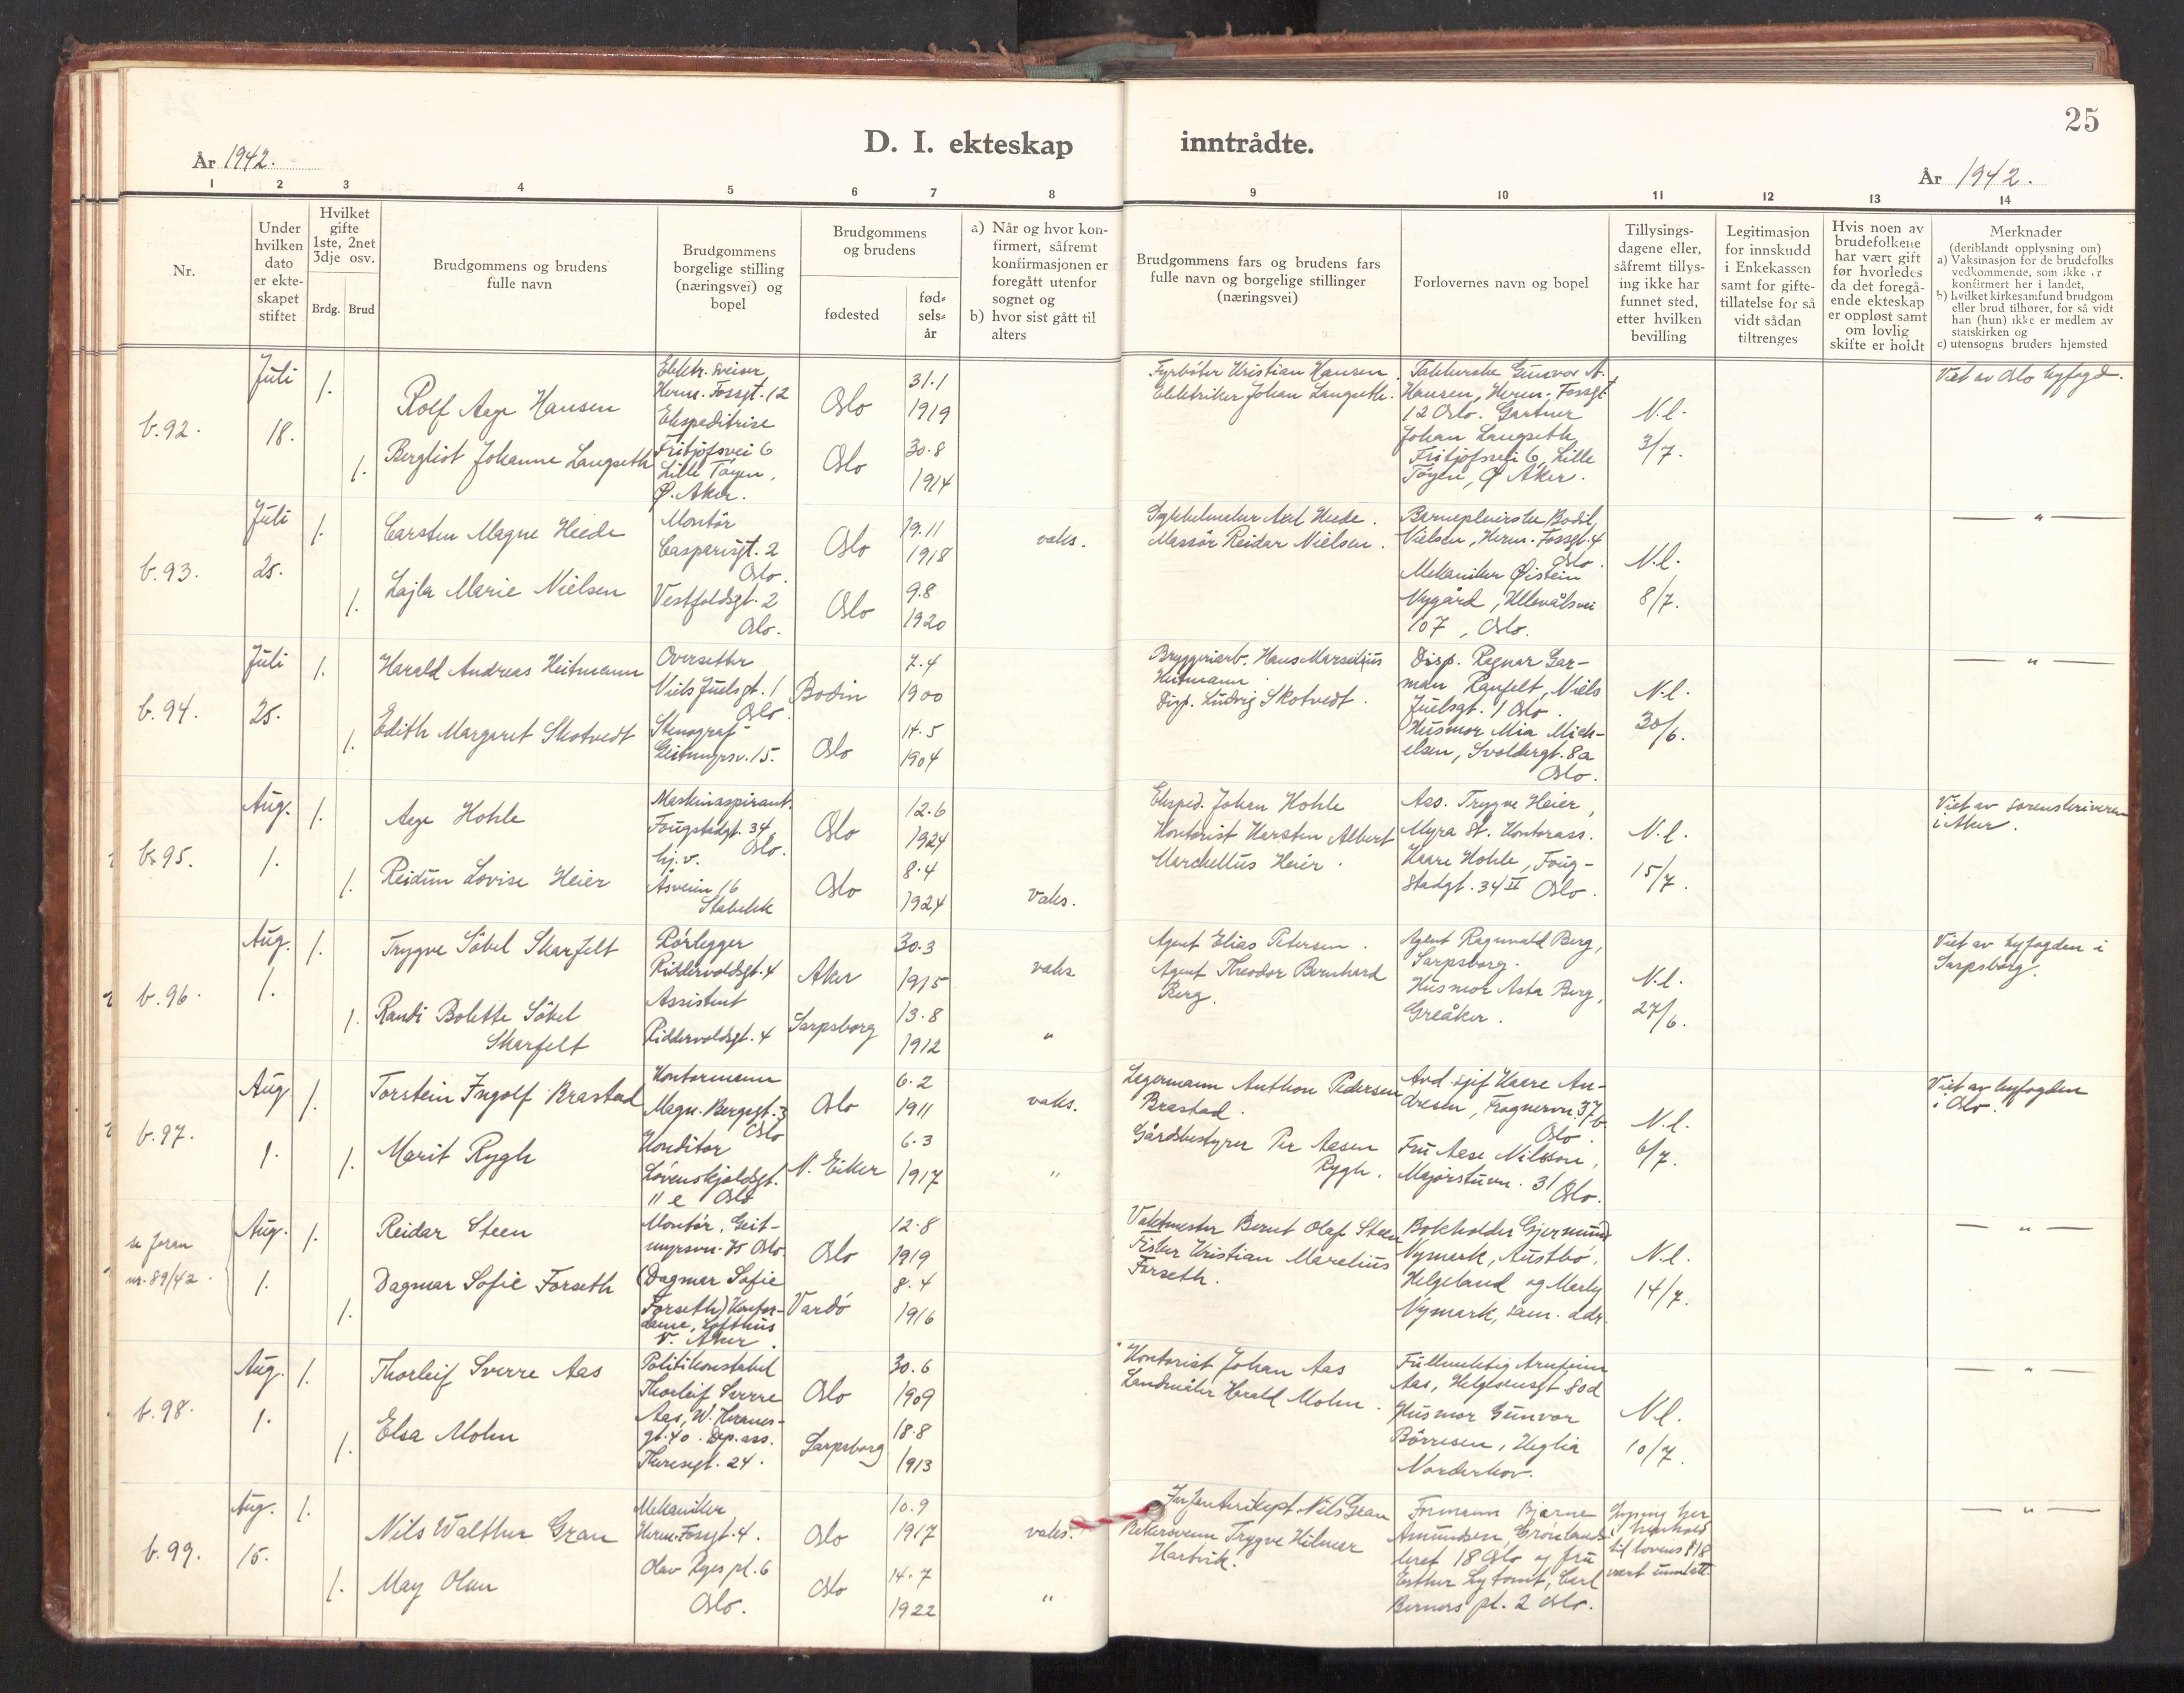 25
D. I. ekteskap inntrådte.
År 1942.
År 1942.
1 2 3 4 5 6 7 8 9 10 11 12 13 14
Nr.
Under
hvilken
dato
er ekte-
skapet
stiftet
Hvilket
gifte
1ste, 2net
3dje osv.
Brdg. Brud
Brudgommens og brudens
fulle navn
Brudgommens
borgelige stilling
(næringsvei) og
bopel
Brudgommens
og brudens
fødested
fød-
sels-
år
a) Når og hvor kon-
firmert, såfremt
konfirmasjonen er
foregått utenfor
sognet og
b) hvor sist gått til
alters
Brudgommens fars og brudens fars
fulle navn og borgelige stillinger
(næringsvei)
Forlovernes navn og bopel
Tillysings-
dagene eller,
såfremt tillys-
ing ikke har
funnet sted,
etter hvilken
bevilling
Legitimasjon
for innskudd
i Enkekassen
samt for gifte-
tillatelse for så
vidt sådan
tiltrenges
Hvis noen av
brudefolkene
har vært gift
før hvorledes
da det foregå-
ende ekteskap
er oppløst samt
om lovlig
skifte er holdt
Merknader
(deriblandt opplysning om)
a) Vaksinasjon for de brudefolks
vedkommende, som ikke er
konfirmert her i landet,
b) hvilket kirkesamfund brudgom
eller brud tilhører, for så vidt
han (hun) ikke er medlem av
statskirken og
c) utensogns bruders hjemsted
b. 92.
Juli
18.
1.
1.
Rolf Aage Hansen
Bergliot Johanne Langseth
Elektr. sveiser
Herm. Fossgt. 12
Ekspeditrise
Fritjofsvei 6
Lille Tøyen,
Ø. Aker.
Oslo
Oslo
31.1
1919
30.8
1914
Fyrbøter Kristian Hansen.
Elektriker Johan Langseth.
Gunvor A.
Hansen, Herm. Fossgt
12 Oslo. Gartner
Johan Langseth
Fritjofsvei 6, Lille
Tøyen, Ø Aker.
N.l.
3/7.
Viet av Oslo byfogd.
b. 93.
Juli
25.
1.
1.
Carsten Magne Heede
Lajla Marie Nielsen
Montør
Casparisgt. 2
Oslo.
Vestfoldsgt. 2
Oslo.
Oslo
Oslo
19.11
1918
9.8
1920
vaks.
Axel Heede.
Massør Reidar Nielsen.
Barnepleierske Bodil
Nielsen, Herm. Fossgt. 4
Oslo.
Mekaniker Øistein
Nygård, Ullevålsvei
107, Oslo.
N.l.
8/7.
— " —
b. 94.
Juli
25.
1.
1.
Harald Andreas Heitmann
Edith Margaret Skotvedt
Oversetter
Niels Juelsgt. 1
Oslo.
Stenograf
Geitmyrsv. 15.
Bodin
Oslo
7.4
1900
14.5
1904
Bryggeriarb. Hans Marselius
Heitmann.
Disp. Ludvig Skotvedt.
Disp. Ragnar Gar-
man Ranfelt, Niels
Juelsgt. 1 Oslo.
Husmor Mia Mick-
elsen, Svoldergt. 8a
Oslo.
N.l.
30/6.
— " —
b. 95.
Aug.
1.
1.
1.
Aage Hohle
Reidun Lovise Heier
Maskinaspirant.
Fougstadgt. 34
Oslo.
hj. v.
Åsveien 16
Stabekk
Oslo
Oslo
12.6
1924
8.4
1924
vaks.
Eksped. Johan Hohle
Kontorist Karsten Albert
Marchellus Heier.
Ass. Trygve Heier,
Myra St. Kontorass.
Kaare Hohle, Foug-
stadgt. 34 II Oslo.
N.l.
15/7.
Viet av sorenskriveren
i Aker.
b. 96.
Aug.
1.
1.
1.
Trygve Såbel Skarfelt
Randi Bolette Såbel
Skarfelt
Rørlegger
Riddervoldsgt. 4
Assistent
Riddervoldsgt. 4
Aker
Sarpsborg
30.3
1915
13.8
1912
vaks.
"
Agent Elias Petersen.
Agent Theodor Bernhard
Berg.
Agent Ragnvald Berg,
Sarpsborg.
Husmor Asta Berg,
Greåker.
N.l.
27/6.
Viet av byfogden i
Sarpsborg.
b. 97.
Aug
1.
1.
1.
Torstein Ingolf Brastad
Marit Rygh
Kontormann
Magn. Bergsgt. 3
Oslo
Konditor
Løvenskjoldsgt.
11 e Oslo
Oslo
N. Eiker
6.2
1911
6.3
1917
vaks.
"
Lagermann Anthon Pedersen
Brastad.
Gårdsbestyrer Per Aasen
Rygh.
Avd. sjef Kaare An-
dresen, Frognervn. 37b
Oslo.
Fru Aase Nilsson,
Majorstuvn. 31
Oslo.
N.l.
6/7.
Viet av byfogden
i Oslo.
se foran
nr. 89/42.
Aug.
1.
1.
1.
Reidar Steen
Dagmar Sofie Forseth
Montør, Geit-
myrsvn. 75 Oslo
(Dagmar Sofie
Forseth) Kontor-
dame, Lofthus
V. Aker.
Oslo
Vardø
12.8
1919
8.4
1916
Vaktmester Bernt Olaf Steen
Fisker Kristian Marelius
Forseth.
Bokholder Gjermund
Nymark, Austbø,
Helgeland og Marly
Nymark, sam. adr.
N.l.
14/7.
— " —
b. 98.
Aug.
1.
1.
1.
Thorleif Sverre Aas
Elsa Mohn
Politikonstabel
Thorleif Sverre
Aas, W.
gt. 40. Dep. ass.
Theresgt. 24.
Oslo
Sarpsborg
30.6
1909
18.8
1913
Kontorist Johan Aas
Landmåler Harald Mohn.
Fullmektig Arnfinn
Aas, Helgesensgt 80d
Husmor Gunvor
Børresen, Heglia
Norderhov.
N.l.
10/7.
— " —
b. 99.
Aug.
15.
1.
1.
Nils Walther Gran
May Olsen
Mekaniker
Herm. Fossgt. 4.
Olav Ryes pl. 6
Oslo.
Oslo
Oslo
10.9
1917
14.7
1922
vaks.
"
Infanterikapt. Nils Gran
Trygve Hilmar
Hartvik.
Formann Bjarne
Amundsen, Grønlands-
leret 18 Oslo og fru
Esther Lytomt, Carl
Berners pl. 2 Oslo.
Lysing her
i henhold
til lovens § 18
vært unnlatt.
— " —